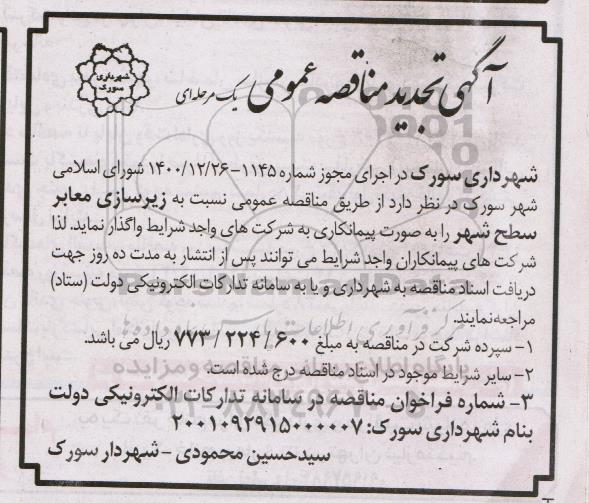 آگهی تجدید مناقصه عمومی یک مرحله‌ای
شهرداری
سورک
شهرداری سورک در اجرای مجوز شماره ۱۱۴۵-۱۴۰۰/۱۲/۲۶ شورای اسلامی
شهر سورک در نظر دارد از طریق مناقصه عمومی نسبت به زیرسازی معابر
سطح شهر را به صورت پیمانکاری به شرکت های واجد شرایط واگذار نماید. لذا
شرکت های پیمانکاران واجد شرایط می توانند پس از انتشار به مدت ده روز جهت
دریافت اسناد مناقصه به شهرداری و یا به سامانه تدارکات الکترونیکی دولت (ستاد)
مراجعه نمایند.
۱- سپرده شرکت در مناقصه به مبلغ ۷۷۳/۲۲۴/۶۰۰ ریال می باشد.
۲- سایر شرایط موجود در اسناد مناقصه درج شده است.
۳- شماره فراخوان مناقصه در سامانه تدارکات الکترونیکی دولت
بنام شهرداری سورک: ۲۰۰۱۰۹۲۹۱۵۰۰۰۰۰۷
سیدحسین محمودی - شهردار سورک